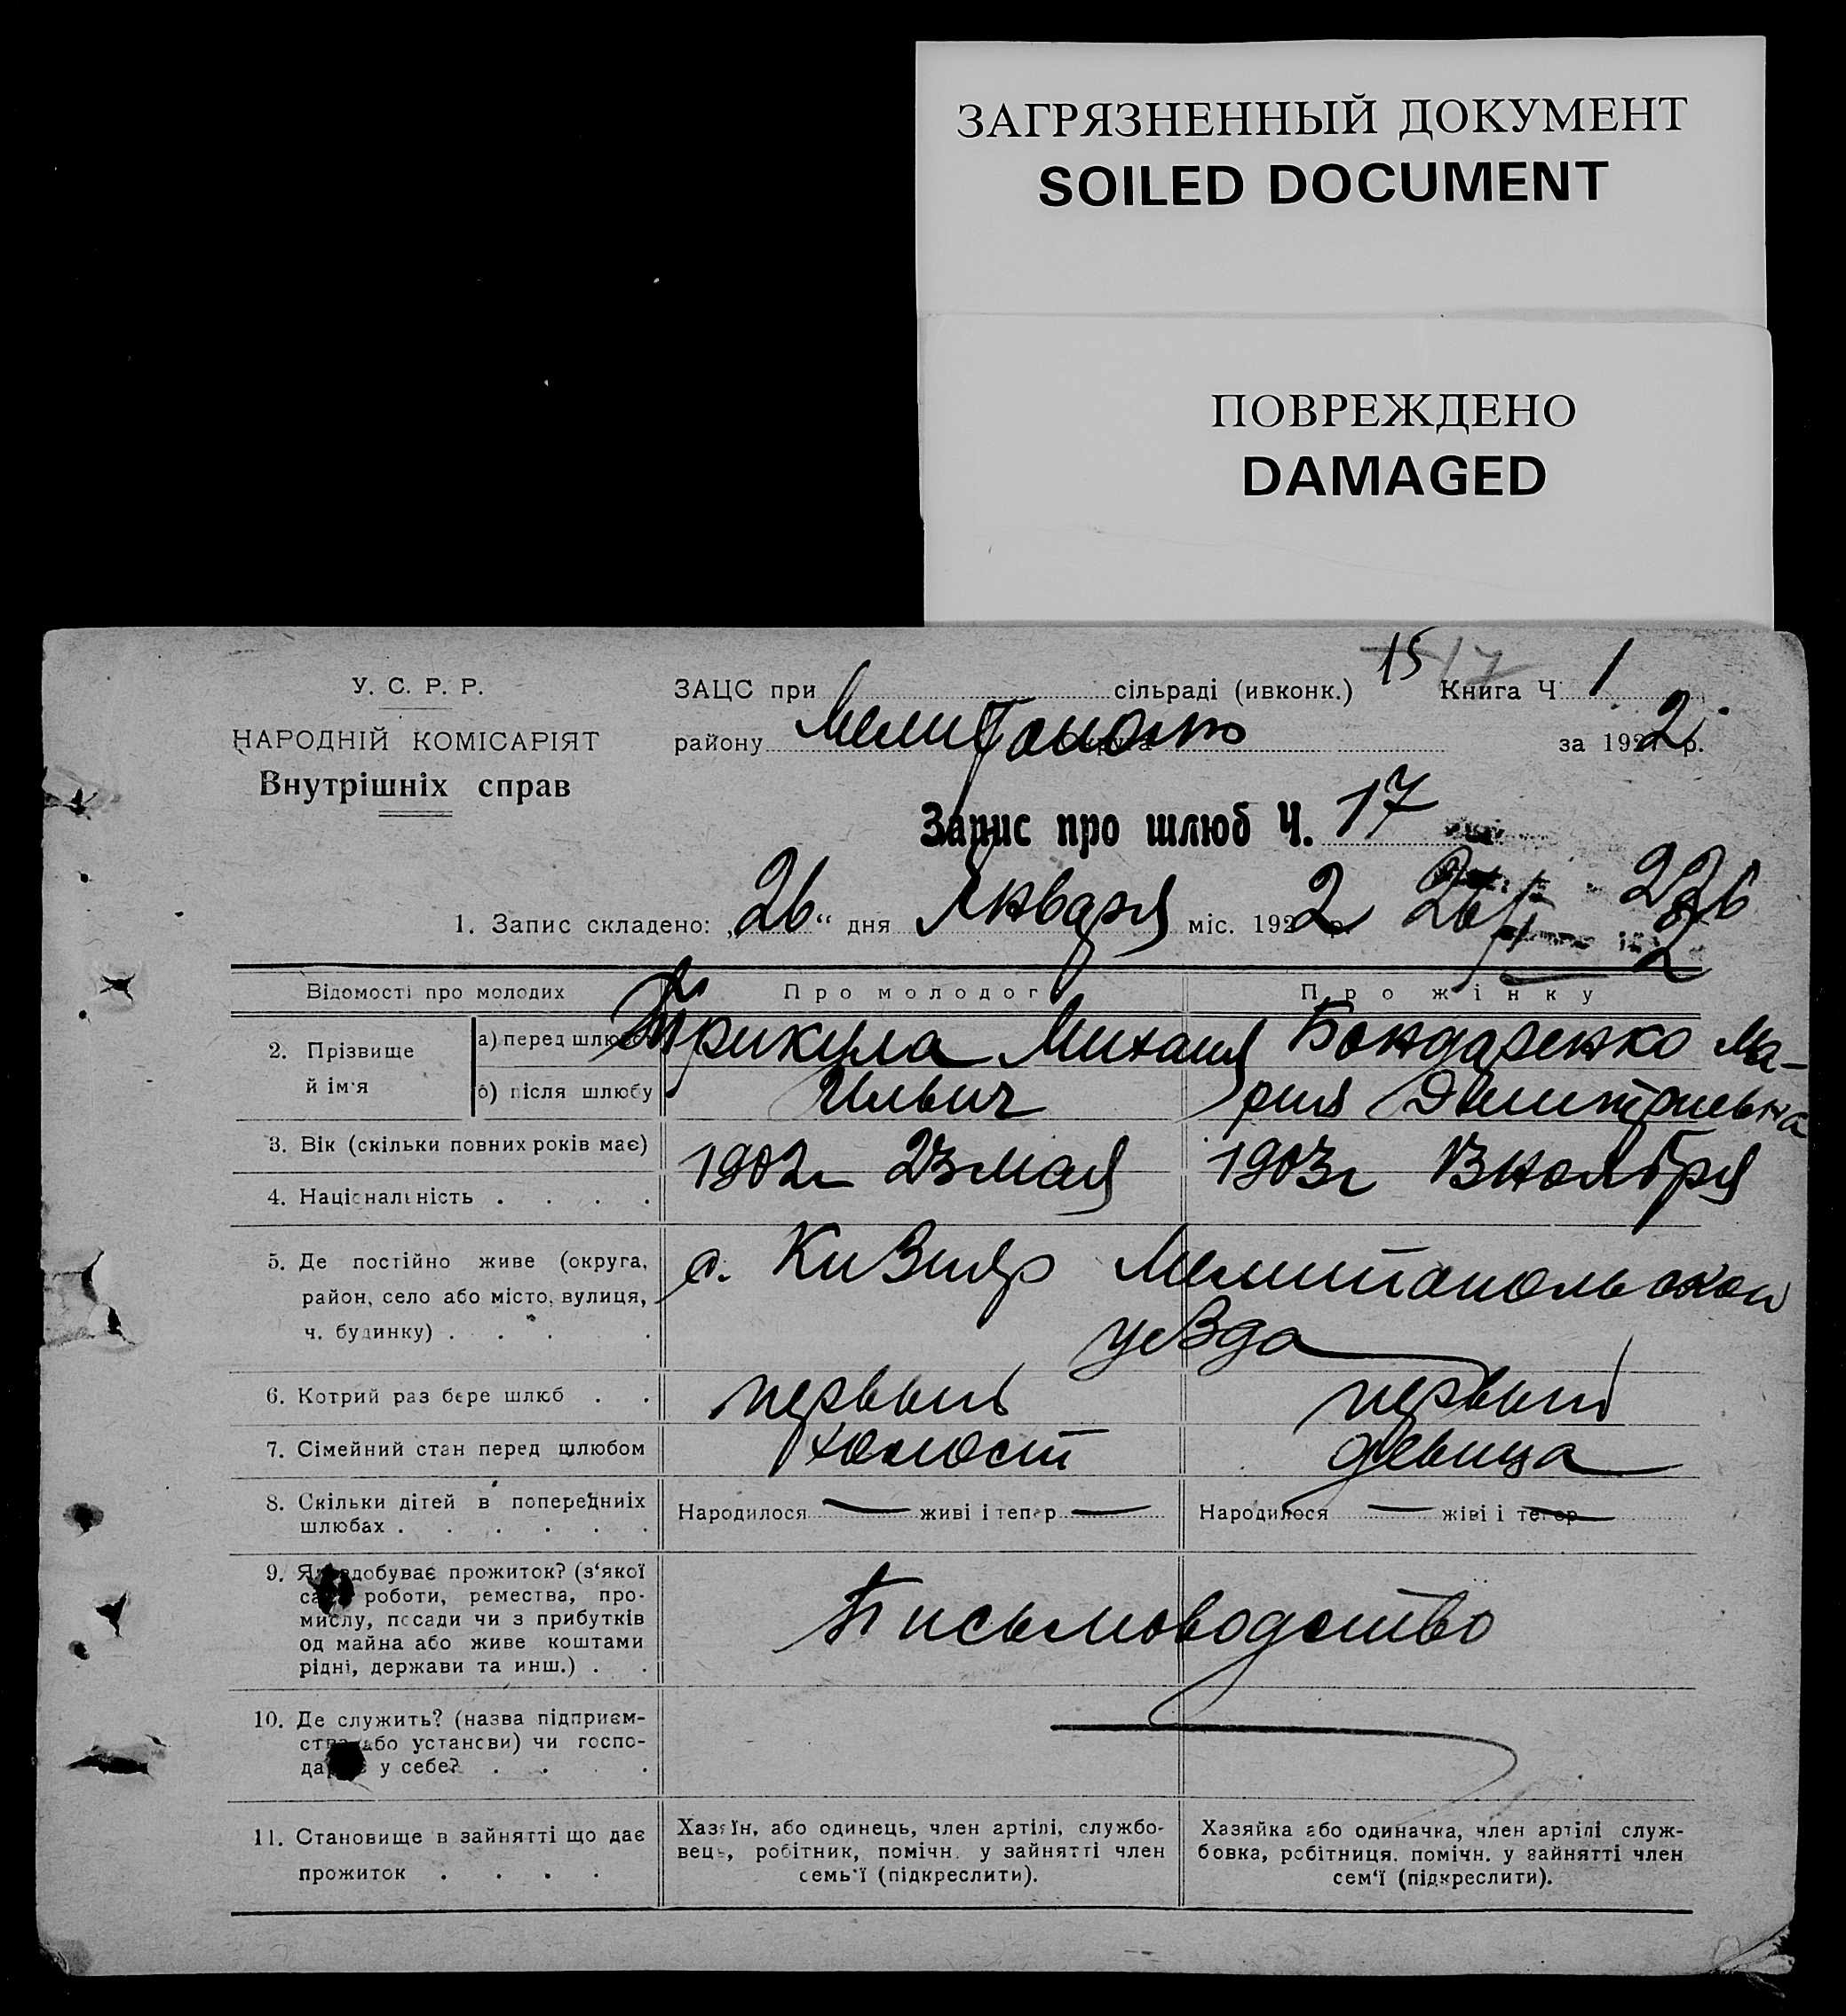 ЗАГРЯЗНЕННЫЙ ДОКУМЕНТ
SOILED DOCUMENT
ПОВРЕЖДЕНО
DAMAGED
У. С. Р. Р.
НАРОДНІЙ КОМІСАРІЯТ
Внутрішніх справ
15 17
ЗАЦС при сільраді (ивконк.) Книга Ч 1
району Мелитополь за 1922 р.
Запис про шлюб Ч. 17
1. Запис складено: „26“ дня Января міс. 1922 р. 26/I
Відомості про молодих Про молодог Про жінку
2. Прізвище й ім'я
а) перед шлюбом Прикула Михаил Бондаренко Ма-
б) після шлюбу Ильич рия Дмитриевна
3. Вік (скільки повних років має) 1902г 23 мая 1903г 13 ноября
4. Національність . . . .
5. Де постійно живе (округа, с. Кизияр Мелитопольской
район, село або місто, вулиця, уезда
ч. будинку) . . . .
6. Котрий раз бере шлюб . . первый первый
7. Сімейний стан перед шлюбом холост девица
8. Скільки дітей в попередниіх Народилося — живі і тепер — Народилося — жіві і тепер —
шлюбах . . . . . .
9. Як здобуває прожиток? (з'якої
саме роботи, ремества, про-
мислу, посади чи з прибутків Письмоводство
од майна або живе коштами
рідні, держави та инш.) . .
10. Де служить? (назва підприєм-
ства або установи) чи госпо-
дарює у себе? . . . .
11. Становище в зайнятті що дає Хазяїн, або одинець, член артілі, службо- Хазяйка або одиначка, член артілі служ-
прожиток . . . . вець, робітник, помічн. у зайнятті член бовка, робітниця. помічн. у зайнятті член
семь'ї (підкреслити). сем'ї (підкреслити).